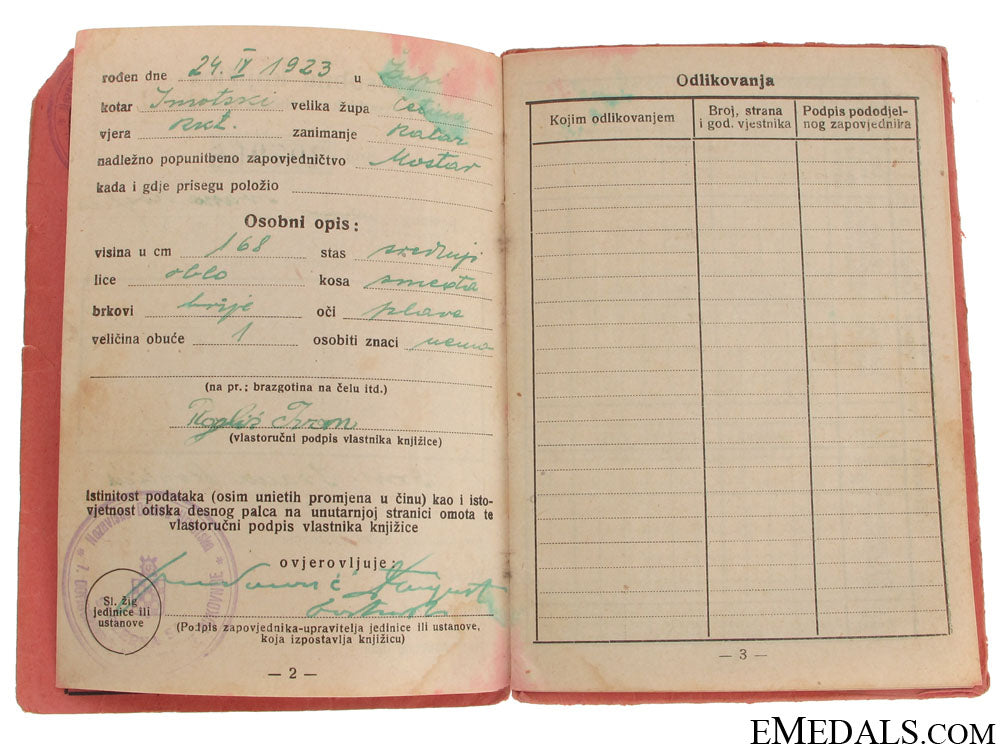 rođen dne 24. IV 1923 u
kotar Imotski velika župa
vjera Rkt. zanimanje Ratar
nadležno popunitbeno zapovjedničtvo Mostar
kada i gdje prisegu položio
Osobni opis:
visina u cm 168 stas srednji
lice oblo kosa smeđa
brkovi brije oči plave
veličina obuće 1 osobiti znaci nema
(na pr.; brazgotina na čelu itd.)
Ivan
(vlastoručni podpis vlastnika knjižice)
Istinitost podataka (osim unietih promjena u činu) kao i isto-
vjetnost otiska desnog palca na unutarnjoj stranici omota te
vlastoručni podpis vlastnika knjižice
ovjerovljuje:
August
Sl. žig
jedinice ili
ustanove
(Podpis zapovjednika-upravitelja jedinice ili ustanove,
koja izpostavlja knjižicu)
— 2 —
Odlikovanja
Kojim odlikovanjem
Broj, strana
i god. vjestnika
Podpis pododjel-
nog zapovjednika
— 3 —
EMEDALS.COM